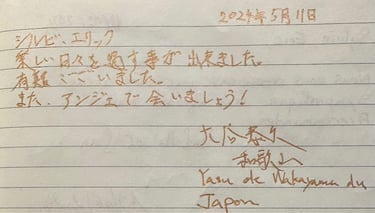 2024年5月11日
シルビ、エリック
楽しい日々を過す事が出来ました。
有難ございました。
また、アンジェで会いましょう!
大谷泰久
和歌山
Yasu de Wakayama du
Japon